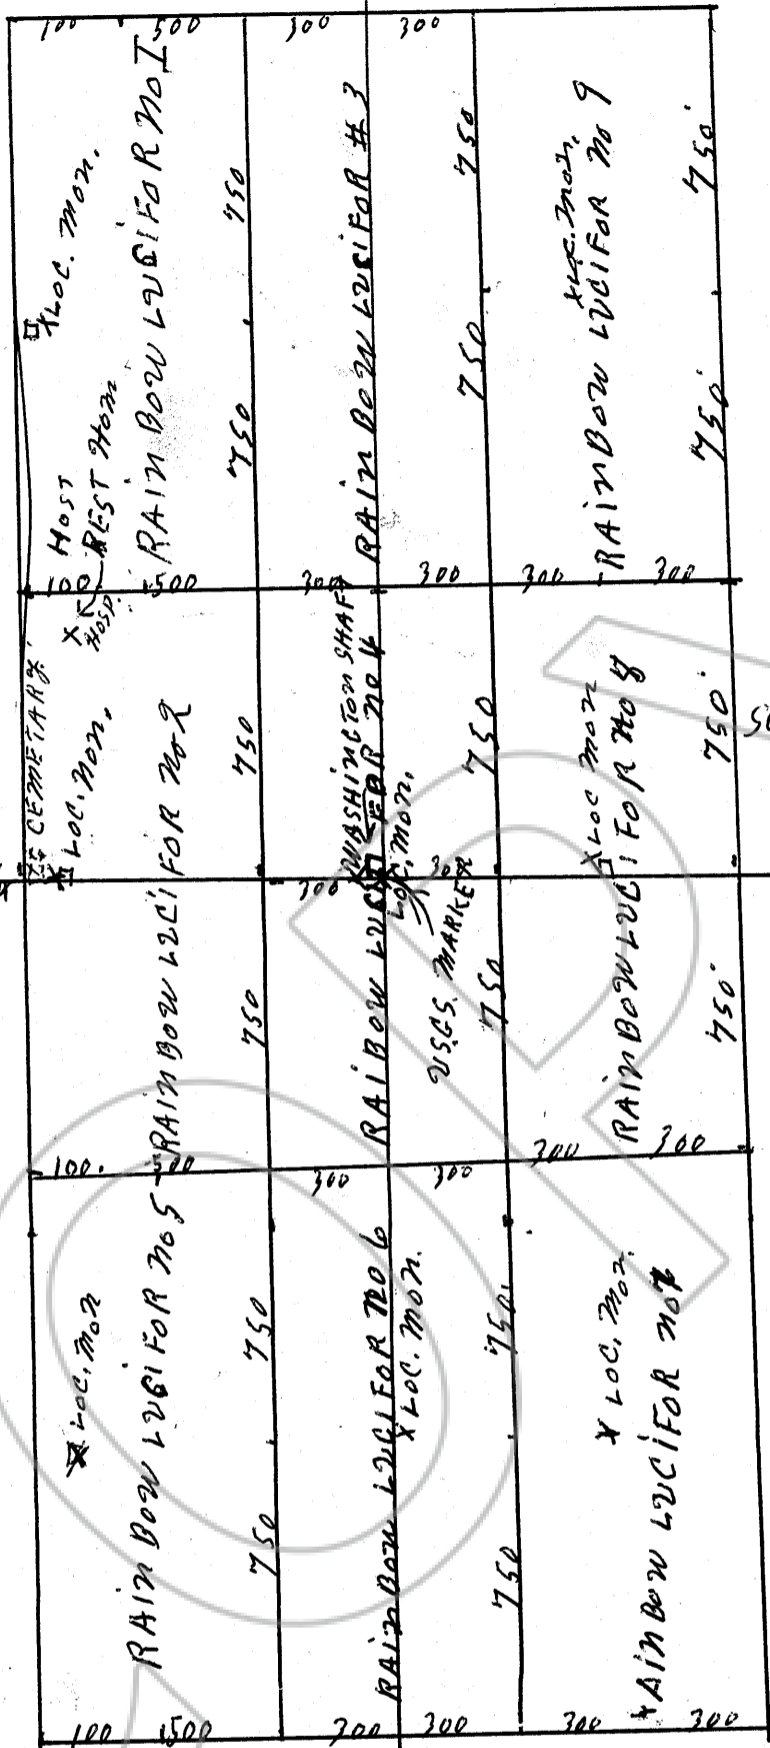 100 500 300 300
RAIN BOW LUCIFOR No I
XLOC. MON.
750
750
HOST
REST HOM
HOSP.
X
RAIN BOW LUCIFOR # 3
750
750
XLOC. MON.
RAINBOW LUCIFOR No 9
750'
750'
100. 500 300 300 300 300
CEMETARY
X LOC. MON.
RAINBOW LUCIFOR No 2
750
750
WASHINGTON SHAFT
RAIBOW LUCIFOR No 4
LOC. MON.
USGS. MARKER
300 300
750
750
X LOC MON
RAINBOW LUCIFOR No 8
750'
750'
100. 500 300 300 300 300
X LOC. MON
RAIN BOW LUCIFOR No 5
750
750
RAIN BOW LUCIFOR No 6
X LOC. MON.
750'
750
X LOC. MON.
RAINBOW LUCIFOR No 7
100 500 300 300 300 300